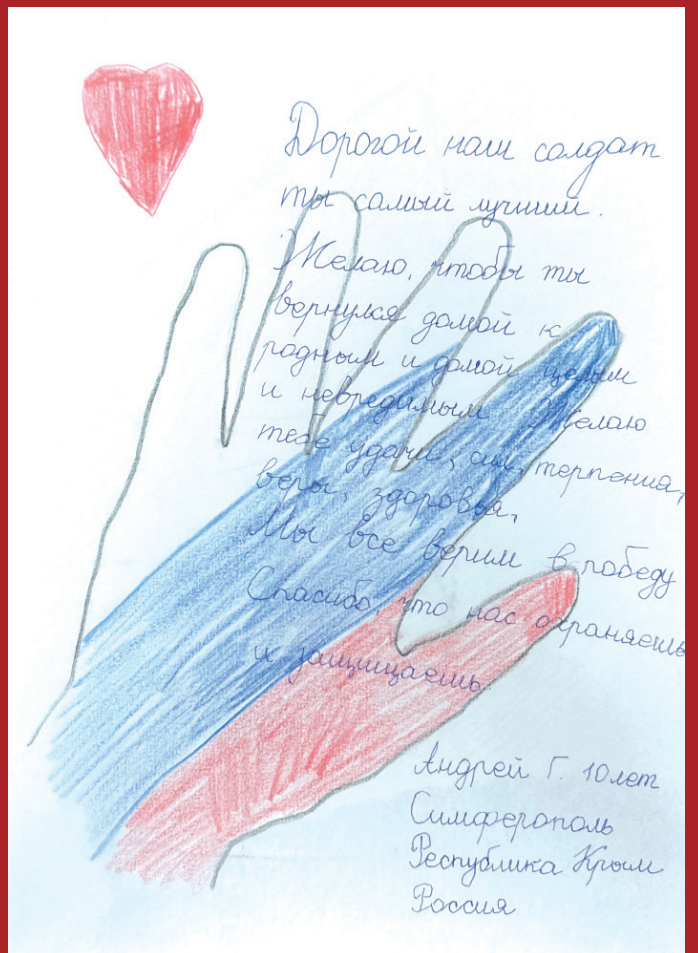 Дорогой наш солдат
ты самый лучший.
Желаю, чтобы ты
вернулся домой к
родным и домой целым
и невредимым Желаю
тебе удачи, сил, терпения,
веры, здоровья,
Мы все верим в победу
Спасибо, что нас охраняешь
и защищаешь.
Андрей Г. 10 лет
Симферополь
Республика Крым
Россия